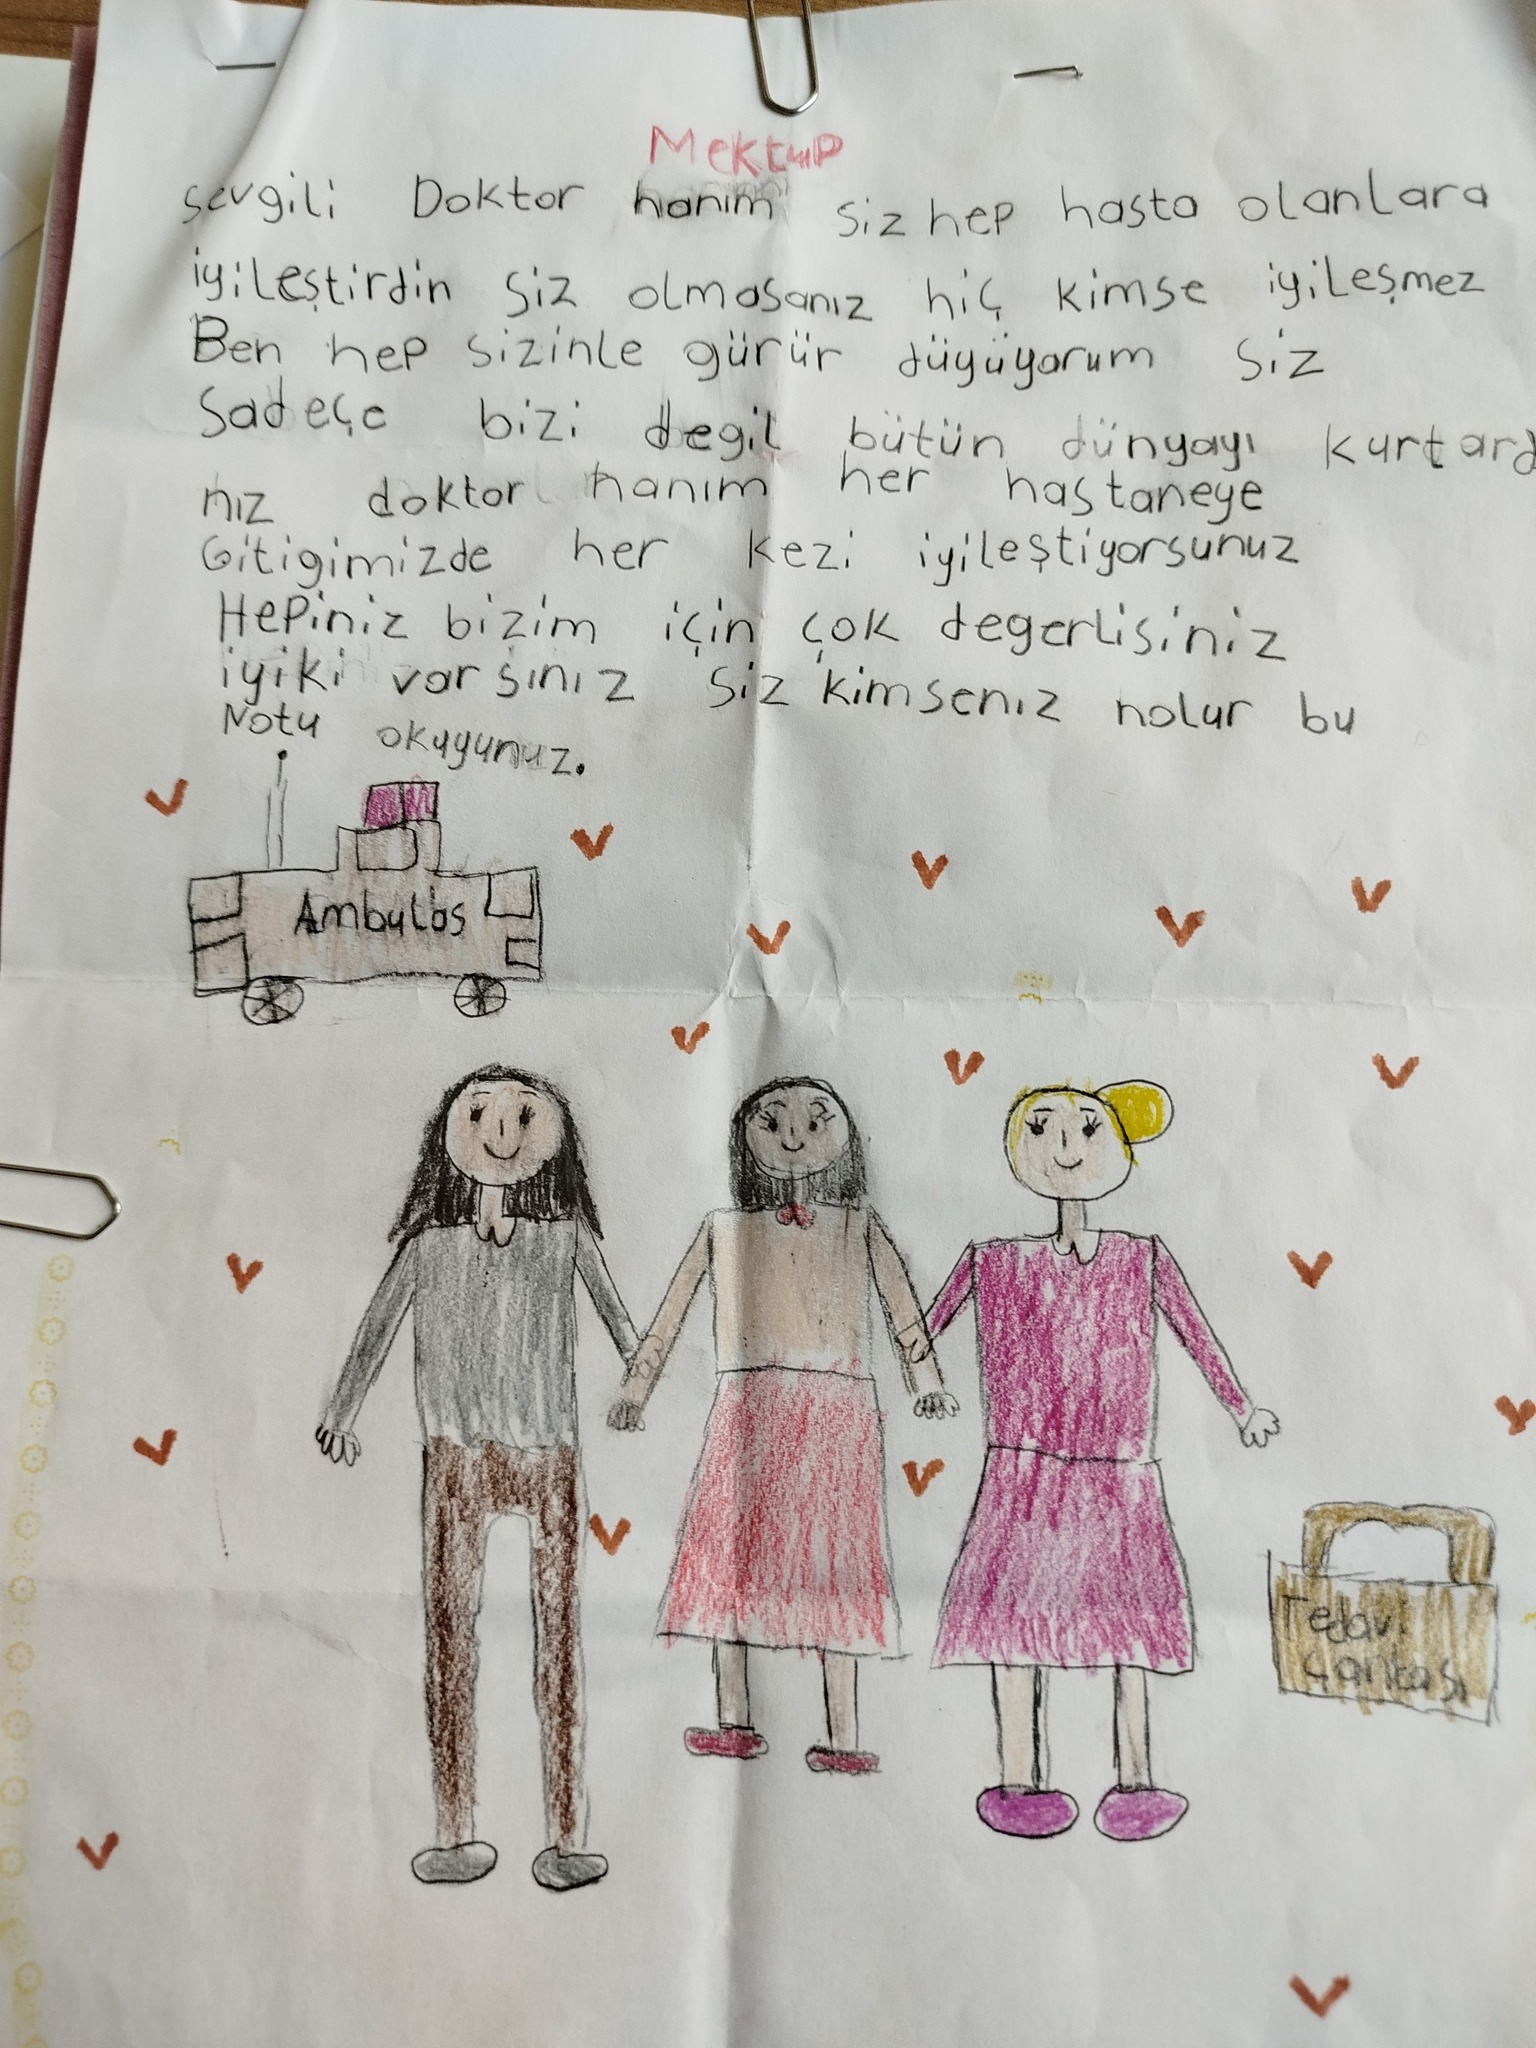 Mektup
sevgili Doktor hanım siz hep hasta olanlara
iyileştirdin siz olmasanız hiç kimse iyileşmez
Ben hep sizinle gürür düyüyorum siz
Sadeçe bizi degil bütün dünyayı kurtard
nız doktor hanım her hastaneye
Gitigimizde her kezi iyileştiyorsunuz
Hepiniz bizim için çok degerlisiniz
iyiki varsınız siz kimsenız nolur bu
Notu okuyunuz.
Ambulas
Tedavi
çantası